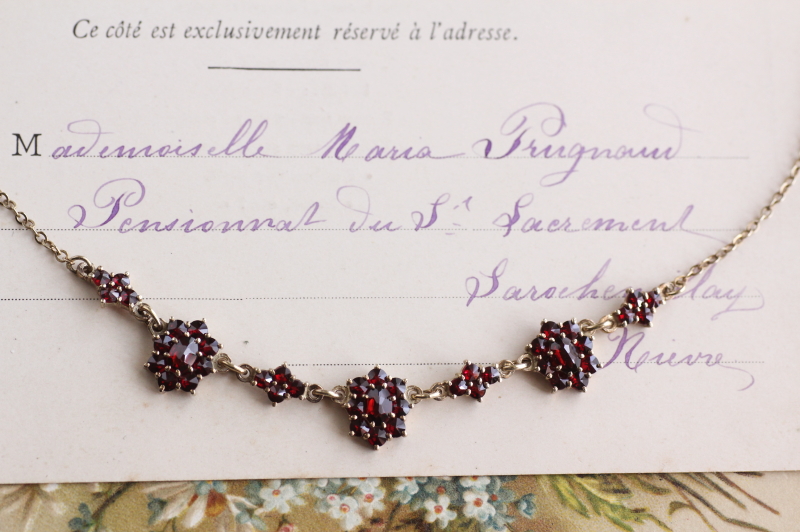 Ce côté est exclusivement réservé à l'adresse.
Mademoiselle Maria Prugnaud
Pensionnat du St Sacrement
Nièvre